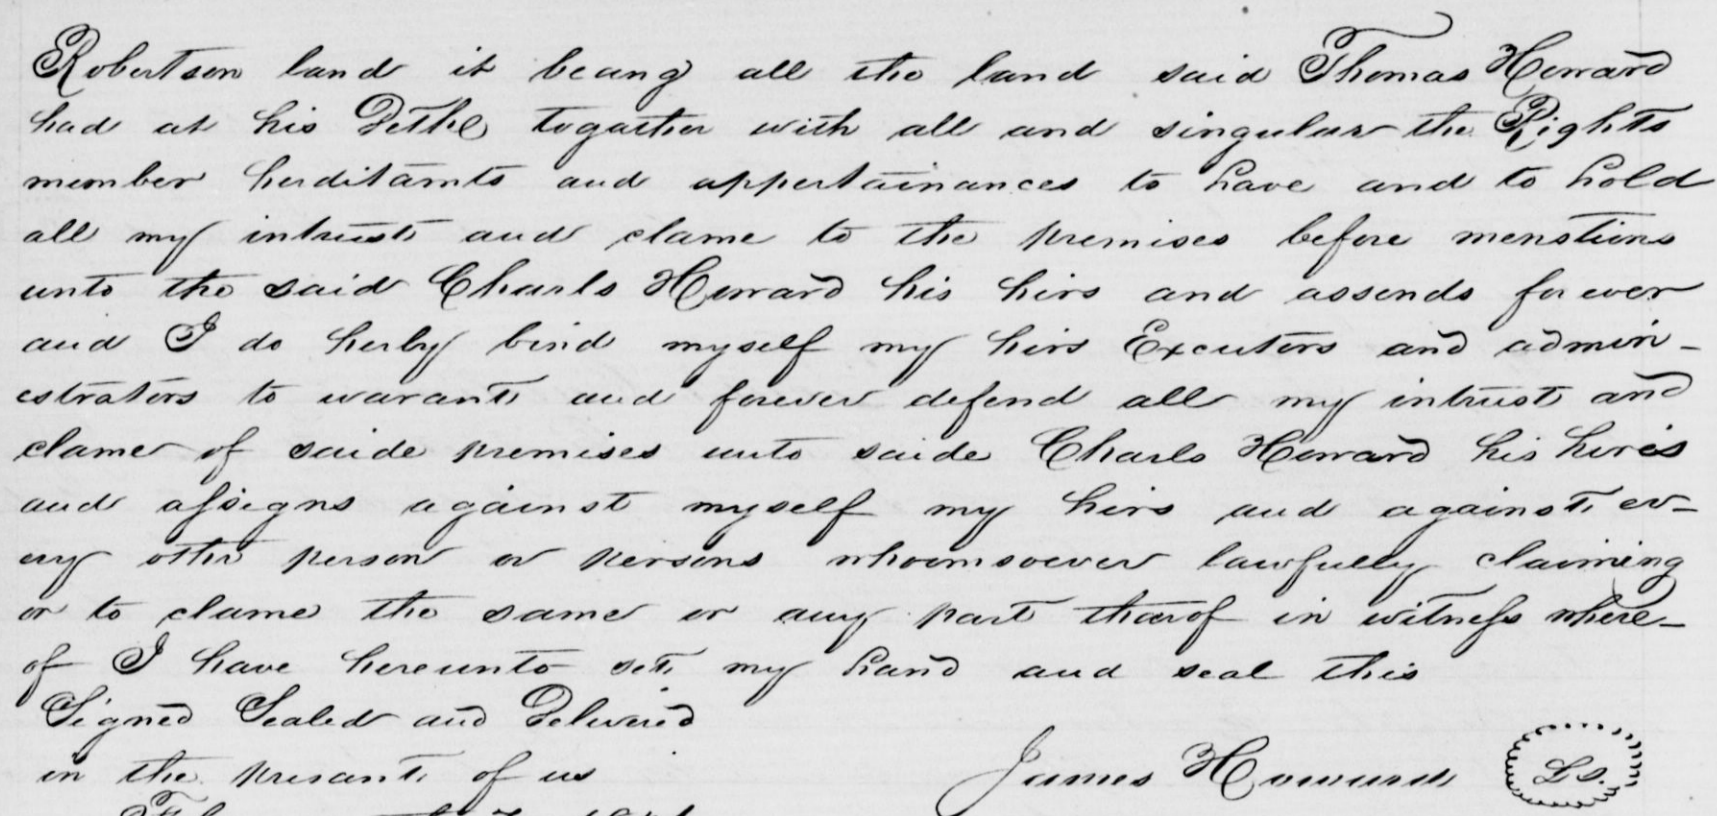 Robertson land it beang all the land said Thomas Howard
had at his Dethe togather with all and singular the Rights
member herditamts and appertainances to have and to hold
all my intrust and clame to the premises before menstions
unto the said Charls Howard his hirs and assends for ever
and I do herby bind myself my hirs Excutors and admin-
estrators to warant and forever defend all my intrust and
clame of saide premises unto saide Charls Howard his hires
and assigns against myself my hirs and against ev-
ery other person or persons whoomsoever lawfully claiming
or to clame the same or any part tharof in witness where-
of I have hereunto set my hand and seal this
Signed Sealed and Delivered
in the presant of us
James Howard L S.